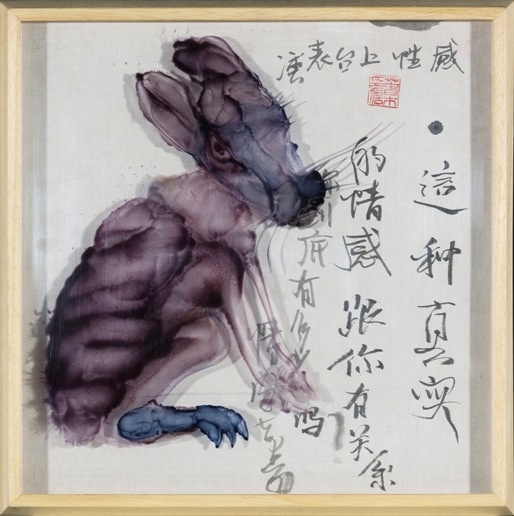 感性上台表演
這种真实
的情感跟你有关系
吗
底有多少